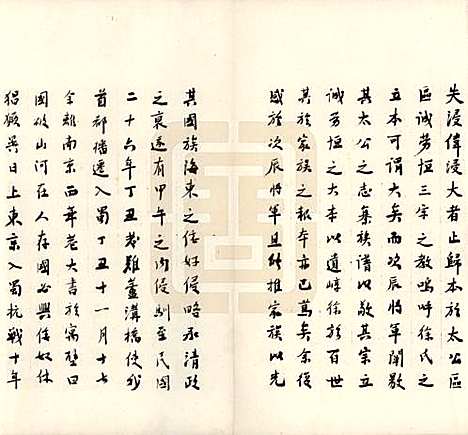 失浸偉浸大者止歸本於太公區
區誠勞恒三宗之教嗚呼徐氏之
立本可謂大矣而次辰將軍闡敭
其太公之志纂族譜以敬其宗立
誠勞恒之大本以道峄徐於百世
其於家族之報本亦已篤矣余復
感於次辰將軍且能推家族以先
其國族海東之倭奴侵略承清政
之衰遂有甲午之內侵剘至民國
二十六年丁丑發難蘆溝橋使我
首都播遷入蜀丁丑十一月十七
余離南京西年老大書於寓壁曰
國破山河在人存國必興倭奴休
猖厥異日上東京入蜀抗戰十年